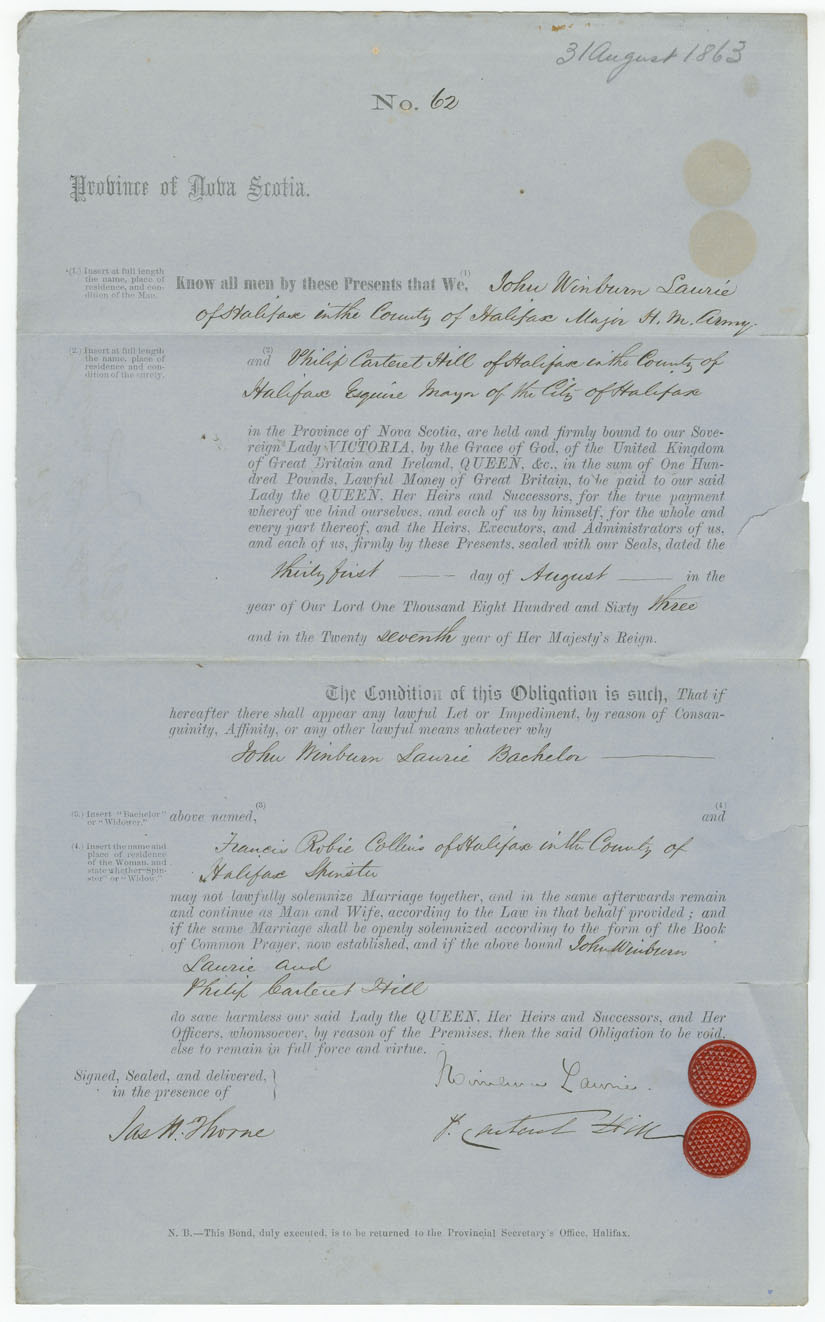 31 August 1863
No. 62
Province of Nova Scotia.
(1.) Insert at full length
the name, place of
residence, and con-
dition of the Man.
Know all men by these Presents that We, (1) John Winburn Laurie
of Halifax in the County of Halifax Major H. M. Army.
(2.) Insert at full length
the name, place of
residence and con-
dition of the surety.
and (2) Philip Carteret Hill of Halifax in the County of
Halifax Esquire Mayor of the City of Halifax
in the Province of Nova Scotia, are held and firmly bound to our Sove-
reign Lady VICTORIA, by the Grace of God, of the United Kingdom
of Great Britain and Ireland, QUEEN, &c., in the sum of One Hun-
dred Pounds, Lawful Money of Great Britain, to be paid to our said
Lady the QUEEN, Her Heirs and Successors, for the true payment
whereof we bind ourselves, and each of us by himself, for the whole and
every part thereof, and the Heirs, Executors, and Administrators of us,
and each of us, firmly by these Presents, sealed with our Seals, dated the
thirty first —— day of August —— in the
year of Our Lord One Thousand Eight Hundred and Sixty three
and in the Twenty seventh year of Her Majesty's Reign.
The Condition of this Obligation is such, That if
hereafter there shall appear any lawful Let or Impediment, by reason of Consan-
guinity, Affinity, or any other lawful means whatever why
John Winburn Laurie Bachelor ——
(3.) Insert "Bachelor"
or "Widower."
above named, (3) and (4)
(4.) Insert the name and
place of residence
of the Woman, and
state whether "Spin-
ster" or "Widow."
Francis Robie Collins of Halifax in the County of
Halifax Spinster
may not lawfully solemnize Marriage together, and in the same afterwards remain
and continue as Man and Wife, according to the Law in that behalf provided; and
if the same Marriage shall be openly solemnized according to the form of the Book
of Common Prayer, now established, and if the above bound John Winburn
Laurie and
Philip Carteret Hill
do save harmless our said Lady the QUEEN, Her Heirs and Successors, and Her
Officers, whomsoever, by reason of the Premises, then the said Obligation to be void,
else to remain in full force and virtue.
Signed, Sealed, and delivered,
in the presence of
Winburn Laurie.
Jas H. Thorne
P. Carteret Hill
N. B.—This Bond, duly executed, is to be returned to the Provincial Secretary's Office, Halifax.